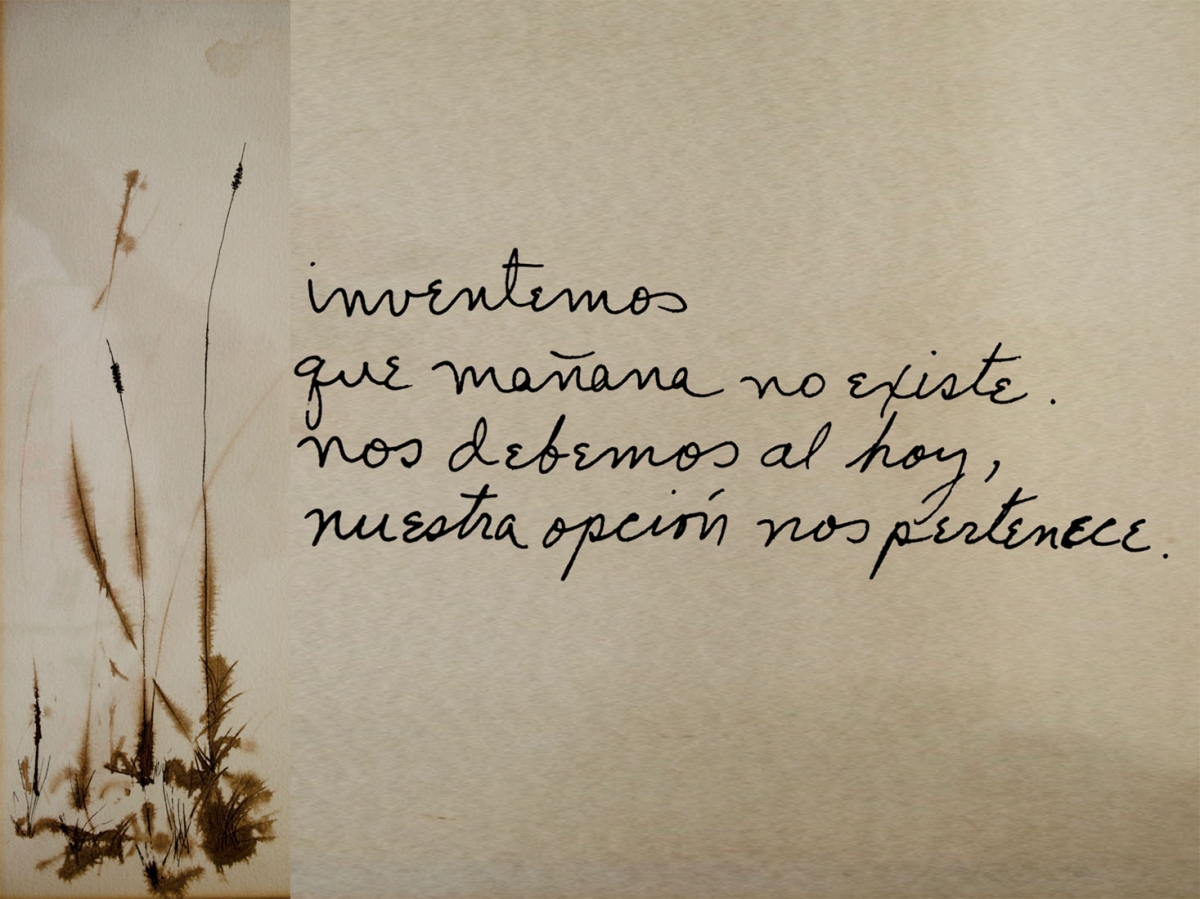 inventemos
que mañana no existe.
nos debemos al hoy,
nuestra opción nos pertenece.